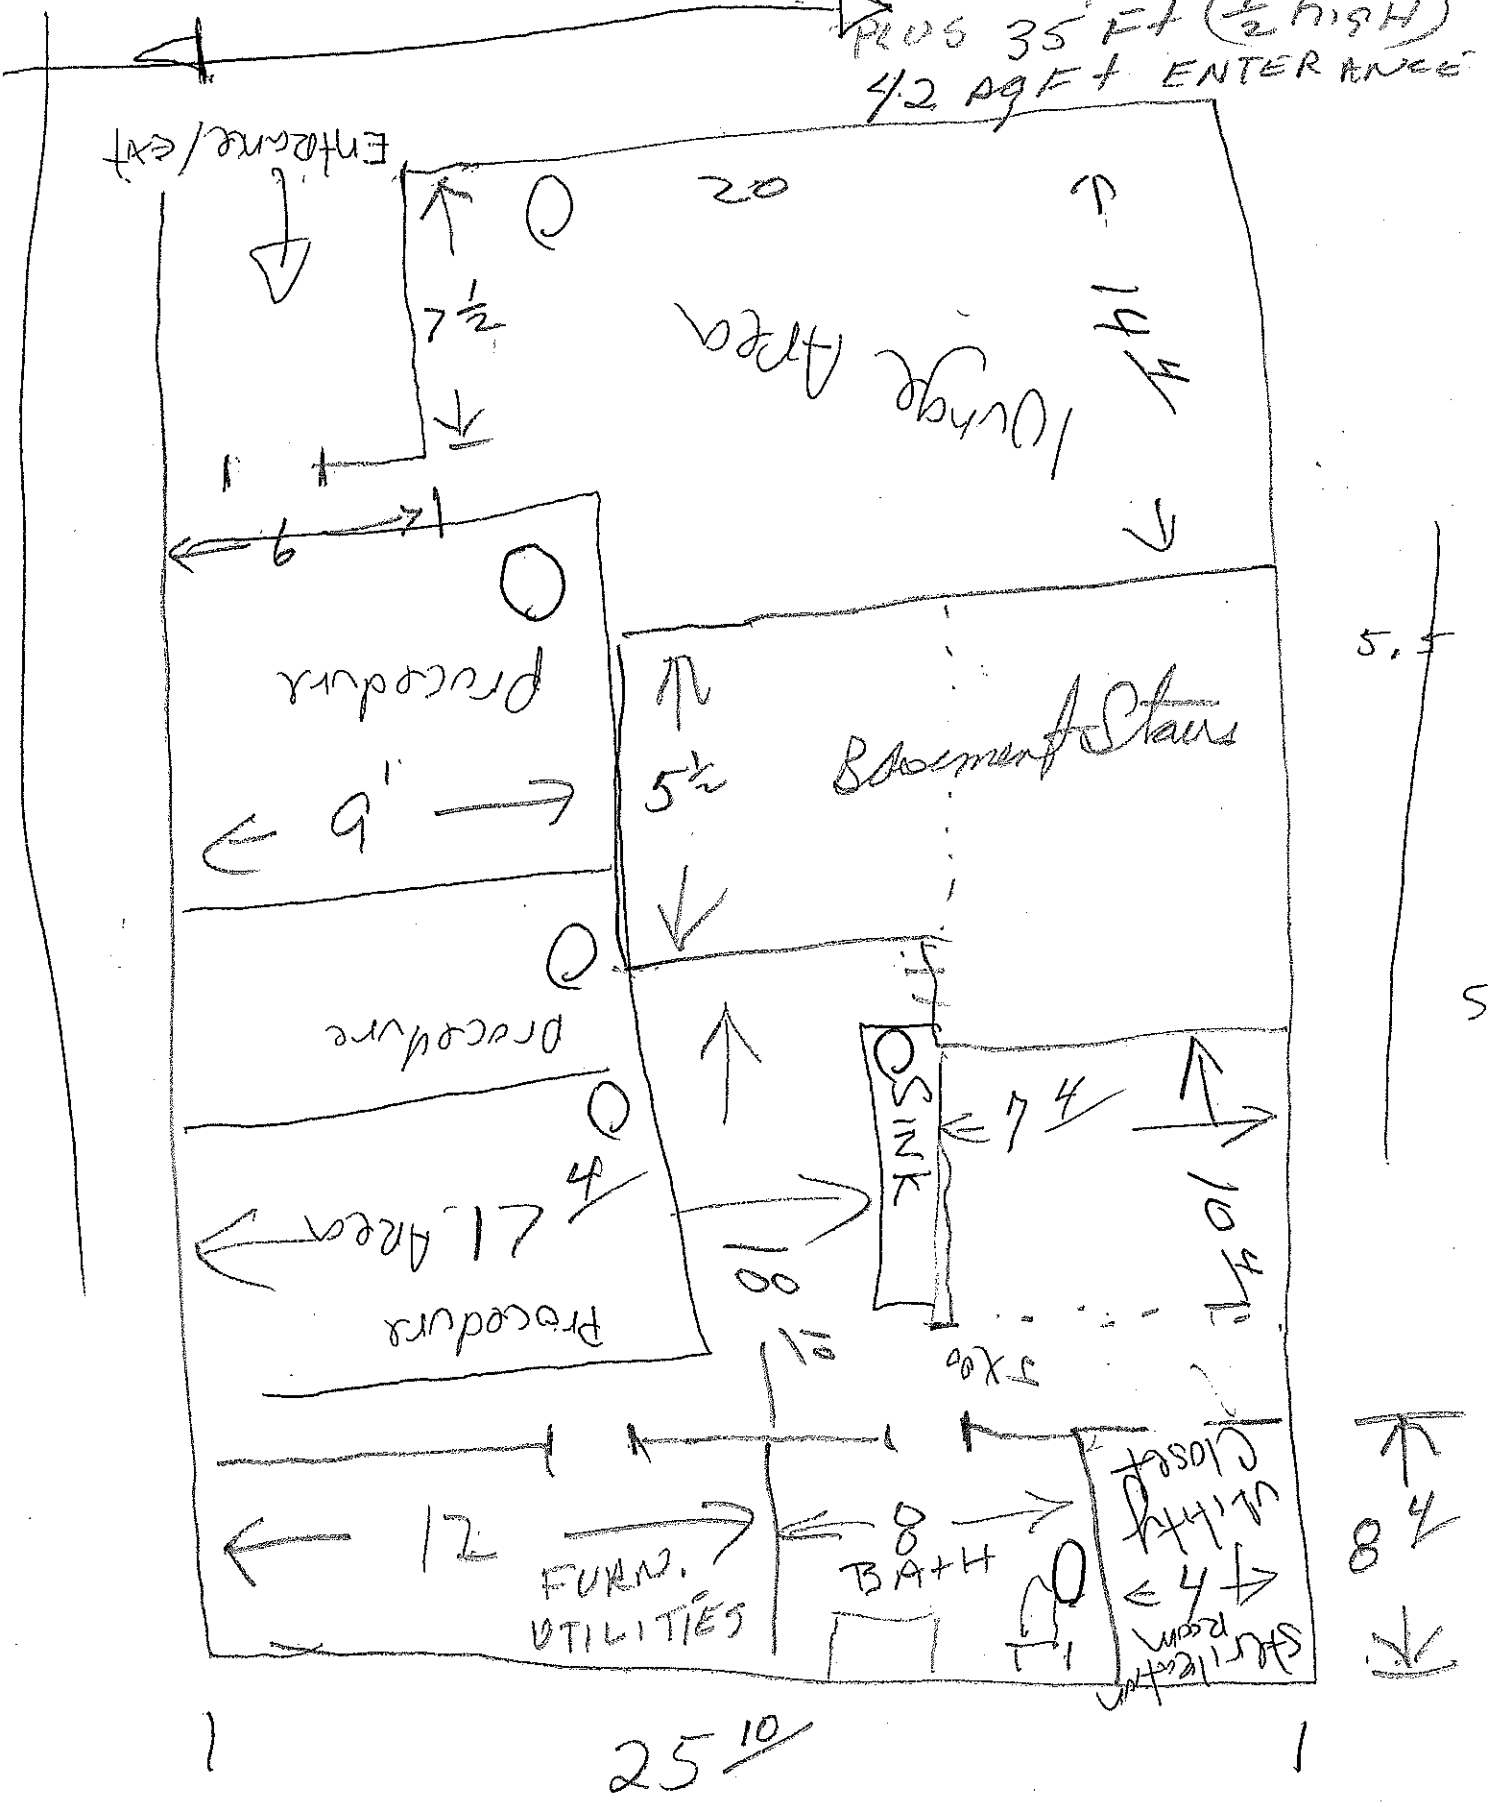 PLUS 35 Ft (½ high)
42 sqFt ENTERANCE
Entrance/ext
20
7 ½
14 4/
lounge Area
6
procedure
9'
5 ½
Basement Stairs
5.5
procedure
SINK
7 4/
10 4/
5
Area
Procedure
12
FURN.
UTILITIES
8
BATH
Utility
Closet
4
Sterilization
Room
8 4/
25 10/